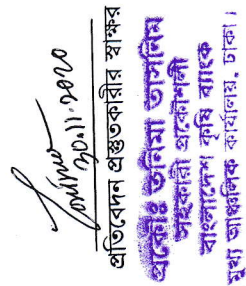 30.11.2020
প্রতিবেদন প্রস্তুতকারীর স্বাক্ষর
প্রকৌঃ তনিমা তাসনিম
সহকারী প্রকৌশলী
বাংলাদেশ কৃষি ব্যাংক
মুখ্য আঞ্চলিক কার্যালয়, ঢাকা।